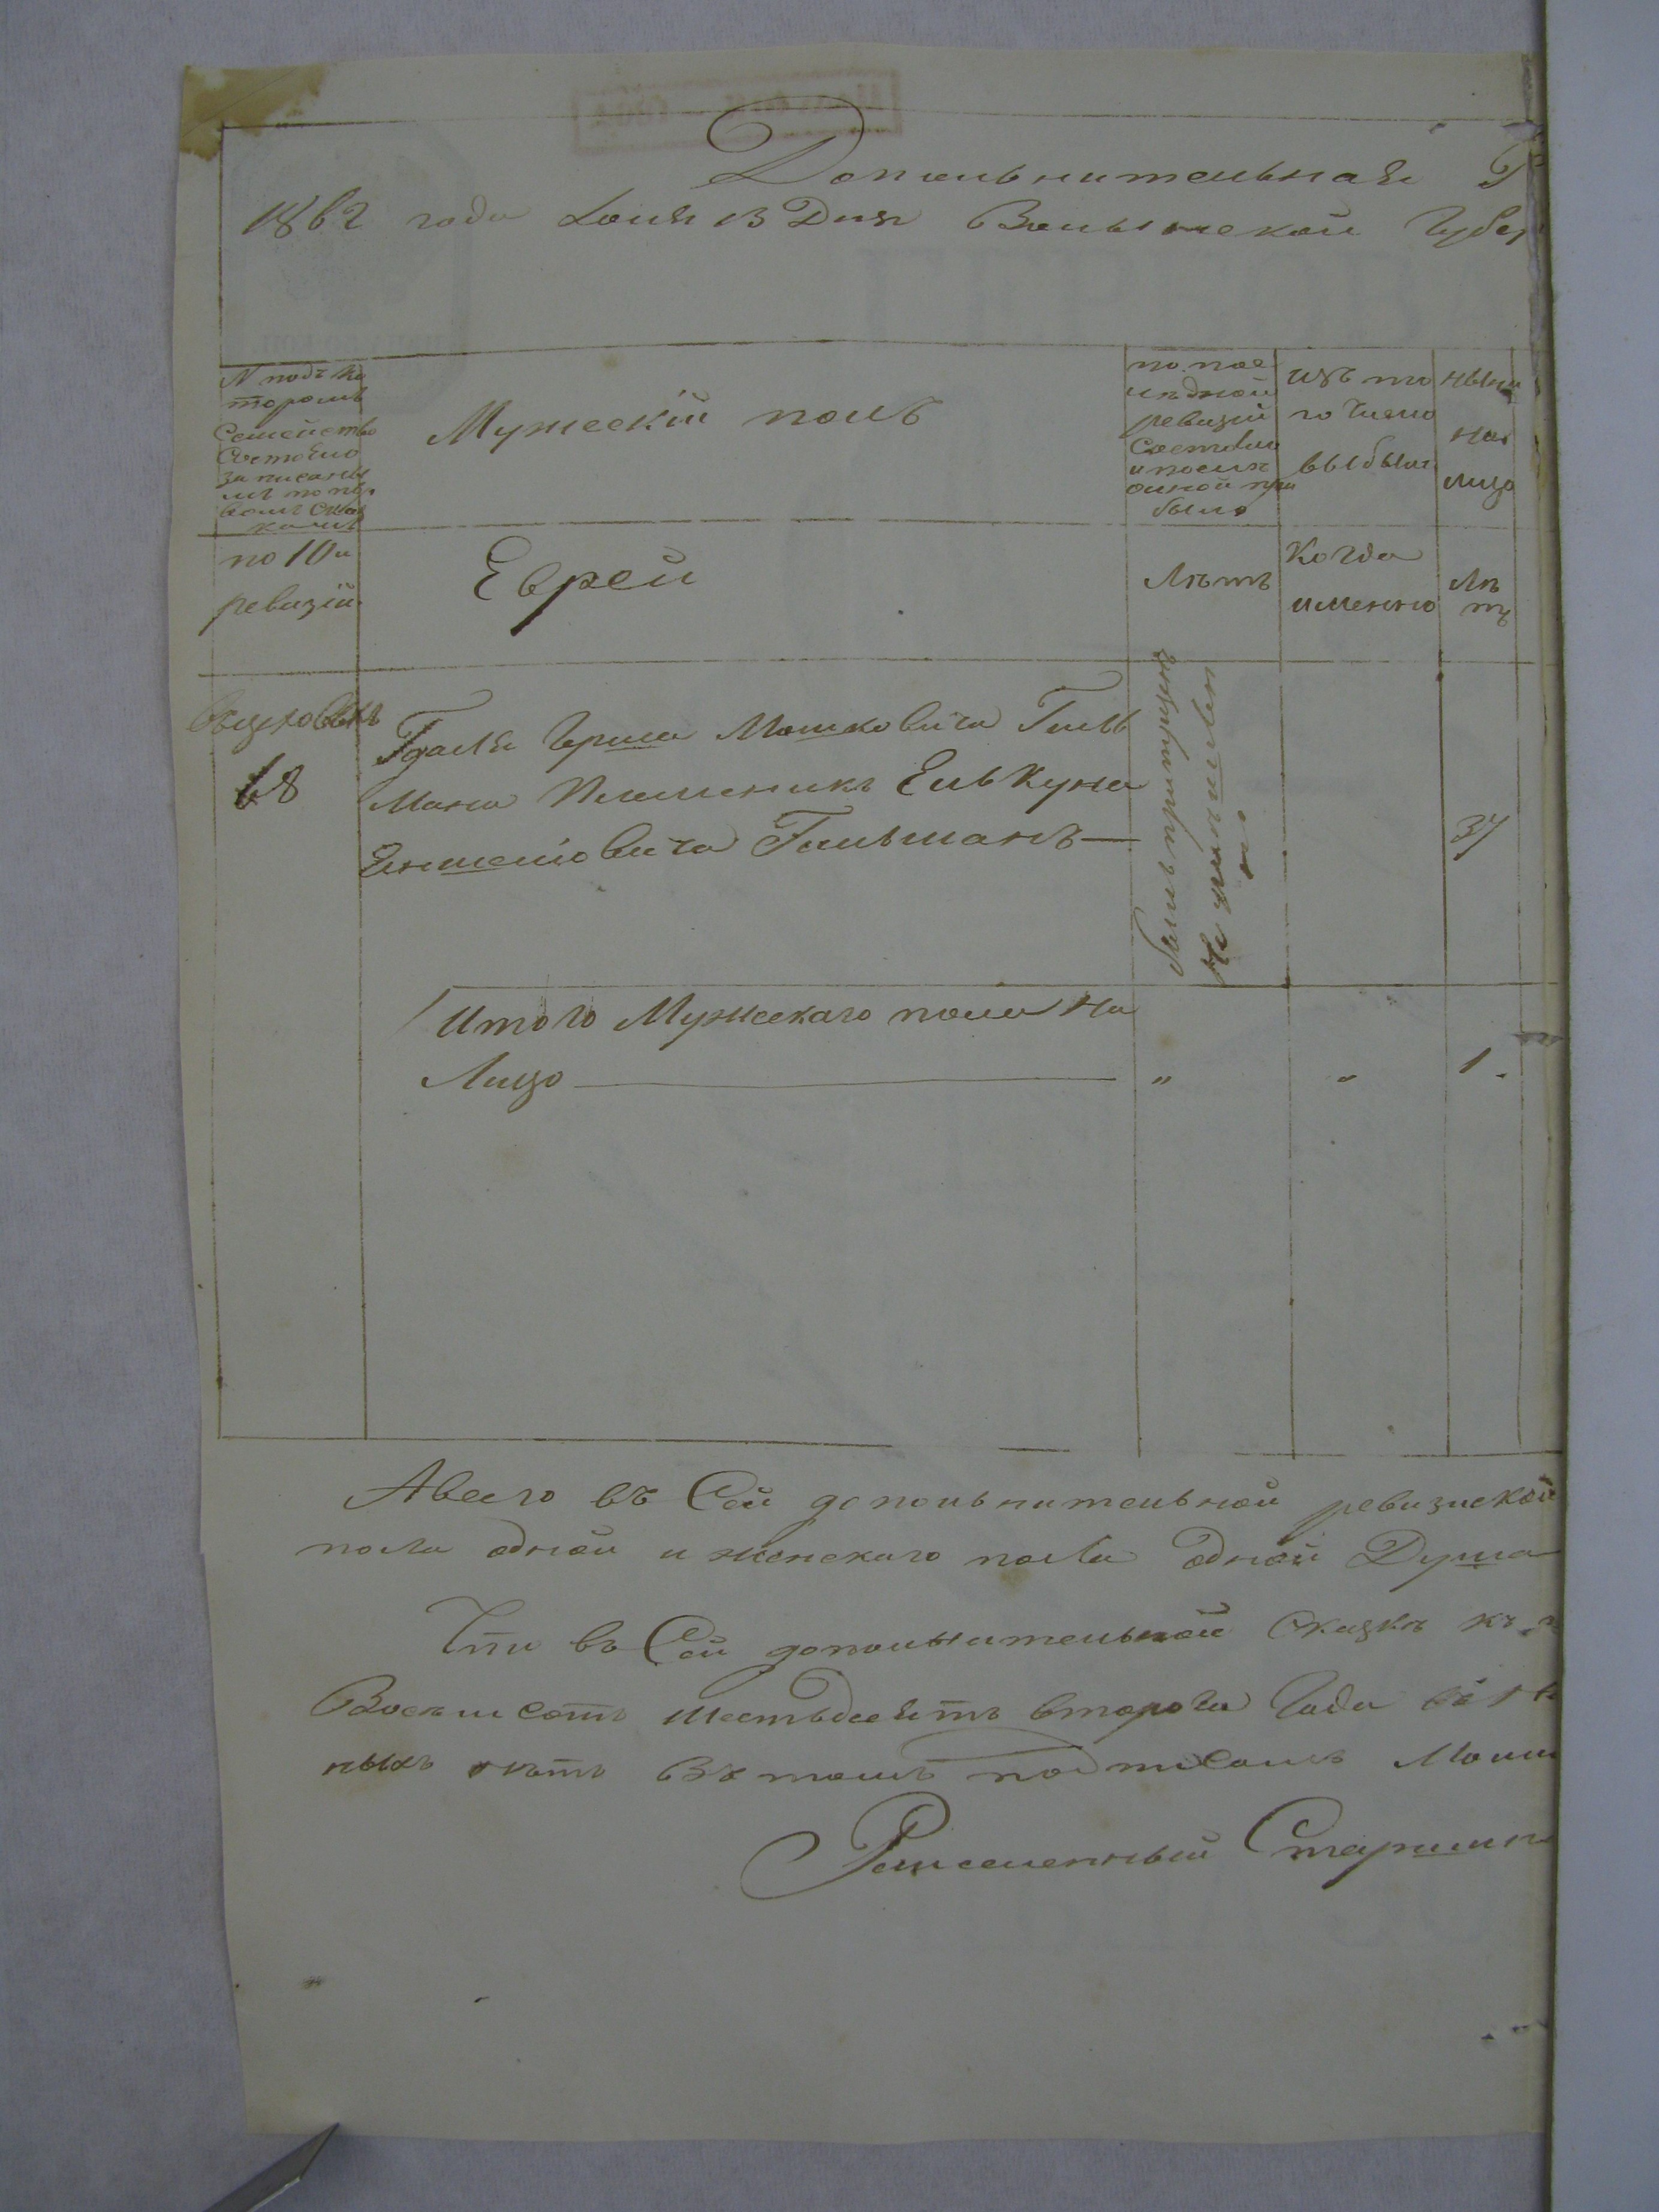 Дополнительная Р
1862 года Іюля 13 Дня Волынской Губер
N подъ ко
торымъ
Семейство
Состояло
записаны
мъ по пер
вымъ Ска
камъ
Мужескій полъ
по пос
лѣдной
ревизіи
Состояло
и послѣ
оной при
было
изъ то
го числа
выбыли
нынѣ
на
лицо
по 10й
ревизіи
Еврей
Лѣтъ
Когда
именно
Лѣ
тъ
68
Гдаля Герша Мошковича Гиль
Мана Племеникъ Елькуна
Гильманъ
37
Итого Мужескаго пола На
Лицо " " 1.
А всего въ Сей дополнительной ревизской
пола одной и женскаго пола одной Душа
Что въ Сей дополнительной Сказкѣ къ
Восемисотъ шестьдесятъ втораго Года
ныхъ нѣтъ Въ томъ подписомъ
Ремесленный Старшин